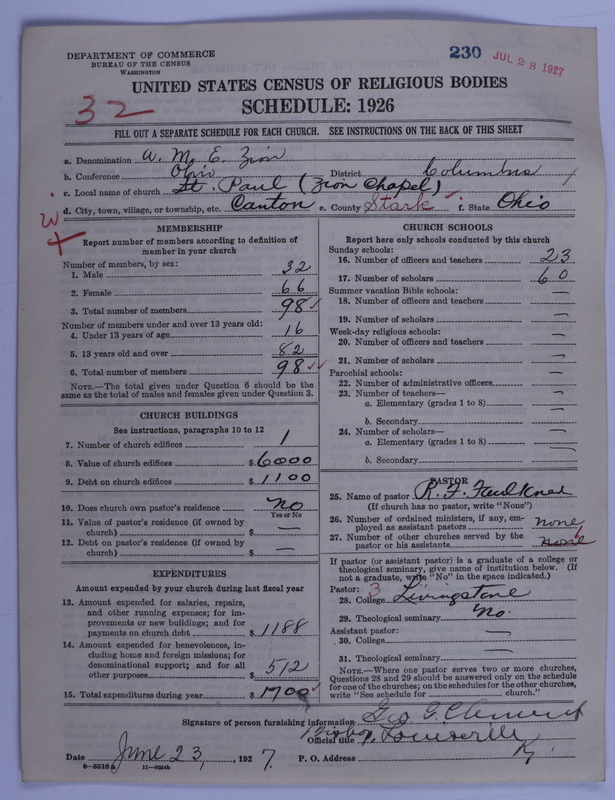 DEPARTMENT OF COMMERCE
BUREAU OF THE CENSUS
WASHINGTON
230 JUL 28 1927
UNITED STATES CENSUS OF RELIGIOUS BODIES
SCHEDULE: 1926
32
FILL OUT A SEPARATE SCHEDULE FOR EACH CHURCH. SEE INSTRUCTIONS ON THE BACK OF THIS SHEET
a. Denomination A. M. E. Zion
b. Conference Ohio District Columbus
c. Local name of church St. Paul (Zion Chapel)
d. City, town, village, or township, etc. Canton e. County Stark f. State Ohio
MEMBERSHIP
Report number of members according to definition of
member in your church
Number of members, by sex:
1. Male 32
2. Female 66
3. Total number of members 98
Number of members under and over 13 years old:
4. Under 13 years of age 16
5. 13 years old and over 82
6. Total number of members 98
NOTE.—The total given under Question 6 should be the
same as the total of males and females given under Question 3.
CHURCH BUILDINGS
See instructions, paragraphs 10 to 12
7. Number of church edifices 1
8. Value of church edifices $ 6000
9. Debt on church edifices $ 1100
10. Does church own pastor's residence No
Yes or No
11. Value of pastor's residence (if owned by
church) $ —
12. Debt on pastor's residence (if owned by
church) $ —
EXPENDITURES
Amount expended by your church during last fiscal year
13. Amount expended for salaries, repairs,
and other running expenses; for im-
provements or new buildings; and for
payments on church debt $ 1188
14. Amount expended for benevolences, in-
cluding home and foreign missions; for
denominational support; and for all
other purposes $ 512
15. Total expenditures during year $ 1700
CHURCH SCHOOLS
Report here only schools conducted by this church
Sunday schools:
16. Number of officers and teachers 23
17. Number of scholars 60
Summer vacation Bible schools:
18. Number of officers and teachers —
19. Number of scholars —
Week-day religious schools:
20. Number of officers and teachers —
21. Number of scholars —
Parochial schools:
22. Number of administrative officers —
23. Number of teachers—
a. Elementary (grades 1 to 8) —
b. Secondary —
24. Number of scholars—
a. Elementary (grades 1 to 8) —
b. Secondary —
PASTOR
25. Name of pastor R. F. Faulkner
(If church has no pastor, write "None")
26. Number of ordained ministers, if any, em-
ployed as assistant pastors none
27. Number of other churches served by the
pastor or his assistants none
If pastor (or assistant pastor) is a graduate of a college or
theological seminary, give name of institution below. (If
not a graduate, write "No" in the space indicated.)
Pastor: 3
28. College Livingstone
29. Theological seminary No.
Assistant pastor:
30. College —
31. Theological seminary —
NOTE.—Where one pastor serves two or more churches,
Questions 28 and 29 should be answered only on the schedule
for one of the churches; on the schedules for the other churches,
write "See schedule for church."
Signature of person furnishing information Geo. G. Clement
Official title Bishop
Date June 23, 1927. P. O. Address Louisville Ky.